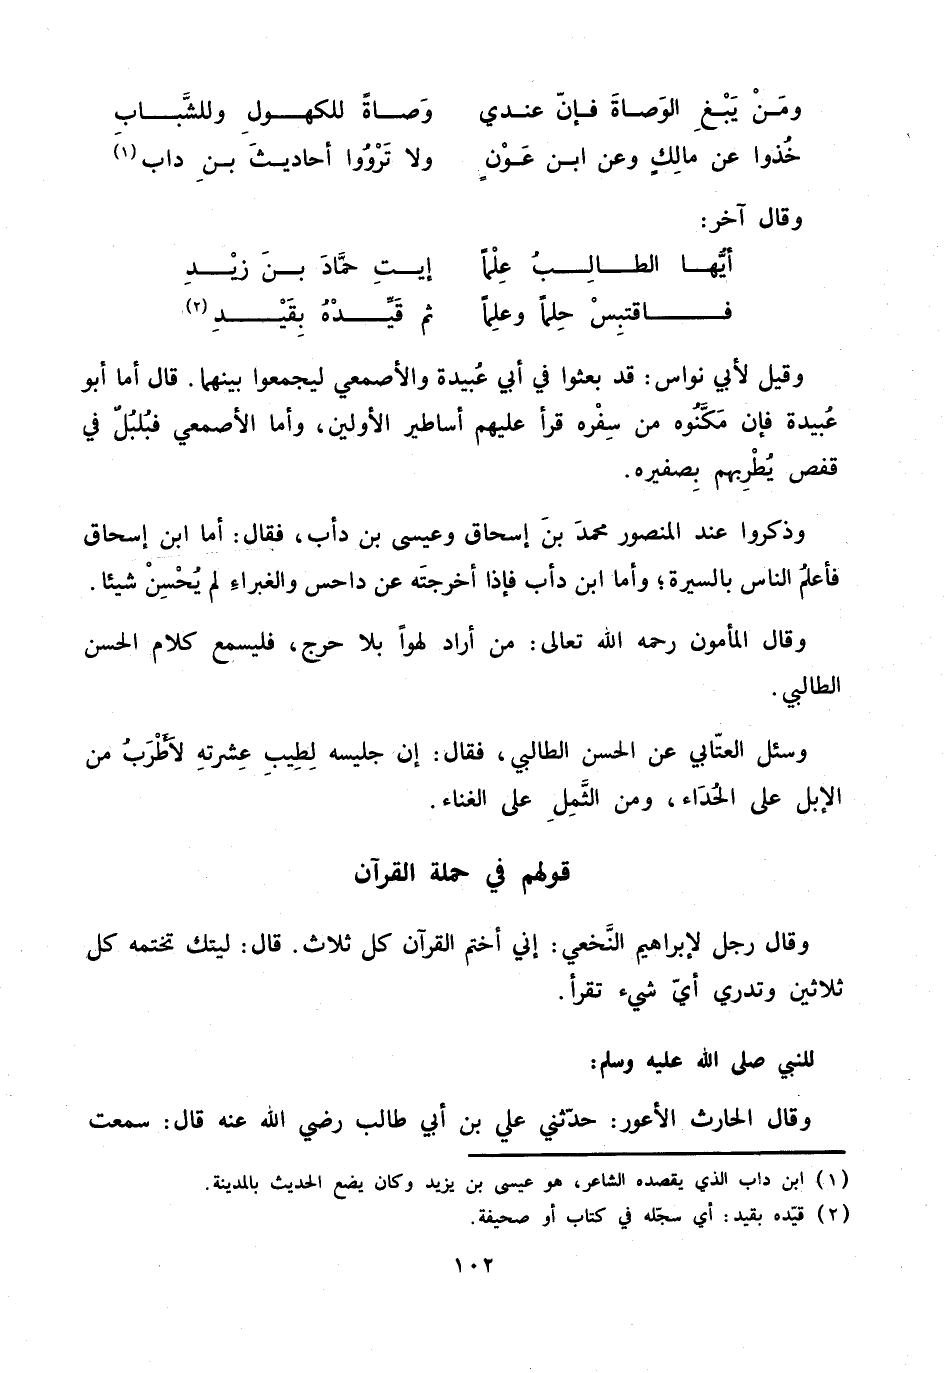 ومَنْ يَبْغِ الوَصاةَ فإنّ عندي وَصاةً للكهولِ وللشَّبابِ
خُذوا عن مالِكٍ وعن ابن عَوْنٍ ولا تَرْوُوا أحاديثَ بنِ داب (١)
وقال آخر:
أيُّها الطالِبُ عِلْماً إيتِ حمَّادَ بنَ زيْدِ
فاقتبِسْ حِلماً وعلِماً ثم قَيِّدْهُ بِقَيْدِ (٢)
وقيل لأبي نواس: قد بعثوا في أبي عُبيدة والأصمعي ليجمعوا بينهما. قال أما أبو
عُبيدة فإن مَكَّنُوه من سِفْره قرأ عليهم أساطير الأولين، وأما الأصمعي فبُلبُلٌ في
قفص يُطْرِبهم بِصفيره.
وذكروا عند المنصور محمدَ بنَ إسحاق وعيسى بن دأب، فقال: أما ابن إسحاق
فأعلمُ الناس بالسيرة؛ وأما ابن دأب فإذا أخرجتَه عن داحس والغبراءِ لم يُحْسِنْ شيئا.
وقال المأمون رحمه الله تعالى: من أراد لهواً بلا حرج، فليسمع كلام الحسن
الطالبي.
وسئل العتّابي عن الحسن الطالبي، فقال: إن جليسه لِطِيبِ عِشرتهِ لأَطْرَبُ من
الإبل على الحُدَاء، ومن الثَّمِلِ على الغناء.
قولهم في حملة القرآن
وقال رجل لإبراهيم النَّخعي: إني أختم القرآن كل ثلاث. قال: ليتك تختمه كل
ثلاثين وتدري أيّ شيء تقرأ.
للنبي صلى الله عليه وسلم:
وقال الحارث الأعور: حدّثني علي بن أبي طالب رضي الله عنه قال: سمعت
(١) ابن داب الذي يقصده الشاعر، هو عيسى بن يزيد وكان يضع الحديث بالمدينة.
(٢) قيّده بقيد: أي سجّله في كتاب أو صحيفة.
١٠٢